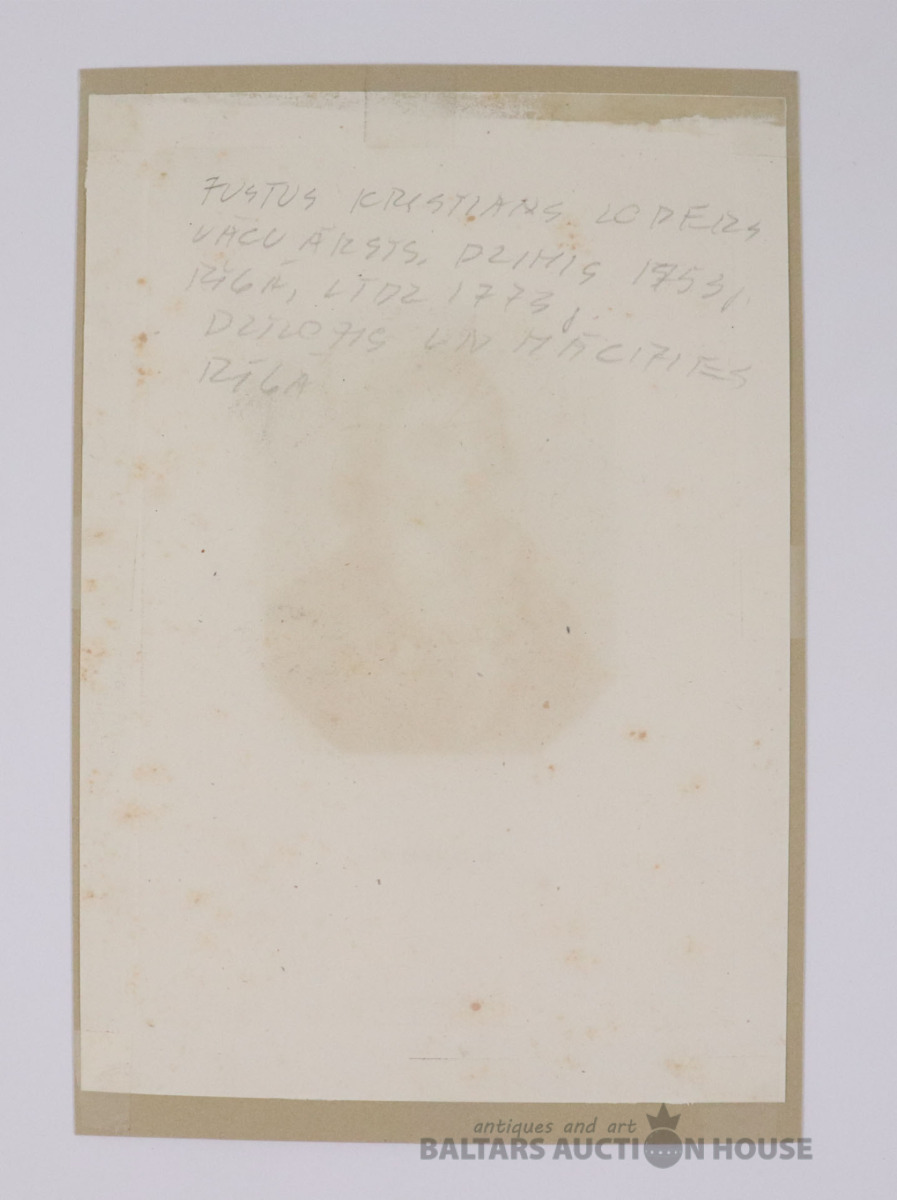 JUSTUS KRISTIANS LODERS
VĀCU ĀRSTS. DZIMIS 1753 g.
RĪGĀ, LĪDZ 1773 g.
DZĪVOJIS UN MĀCIJIES
RĪGĀ
antiques and art
BALTARS AUCTION HOUSE